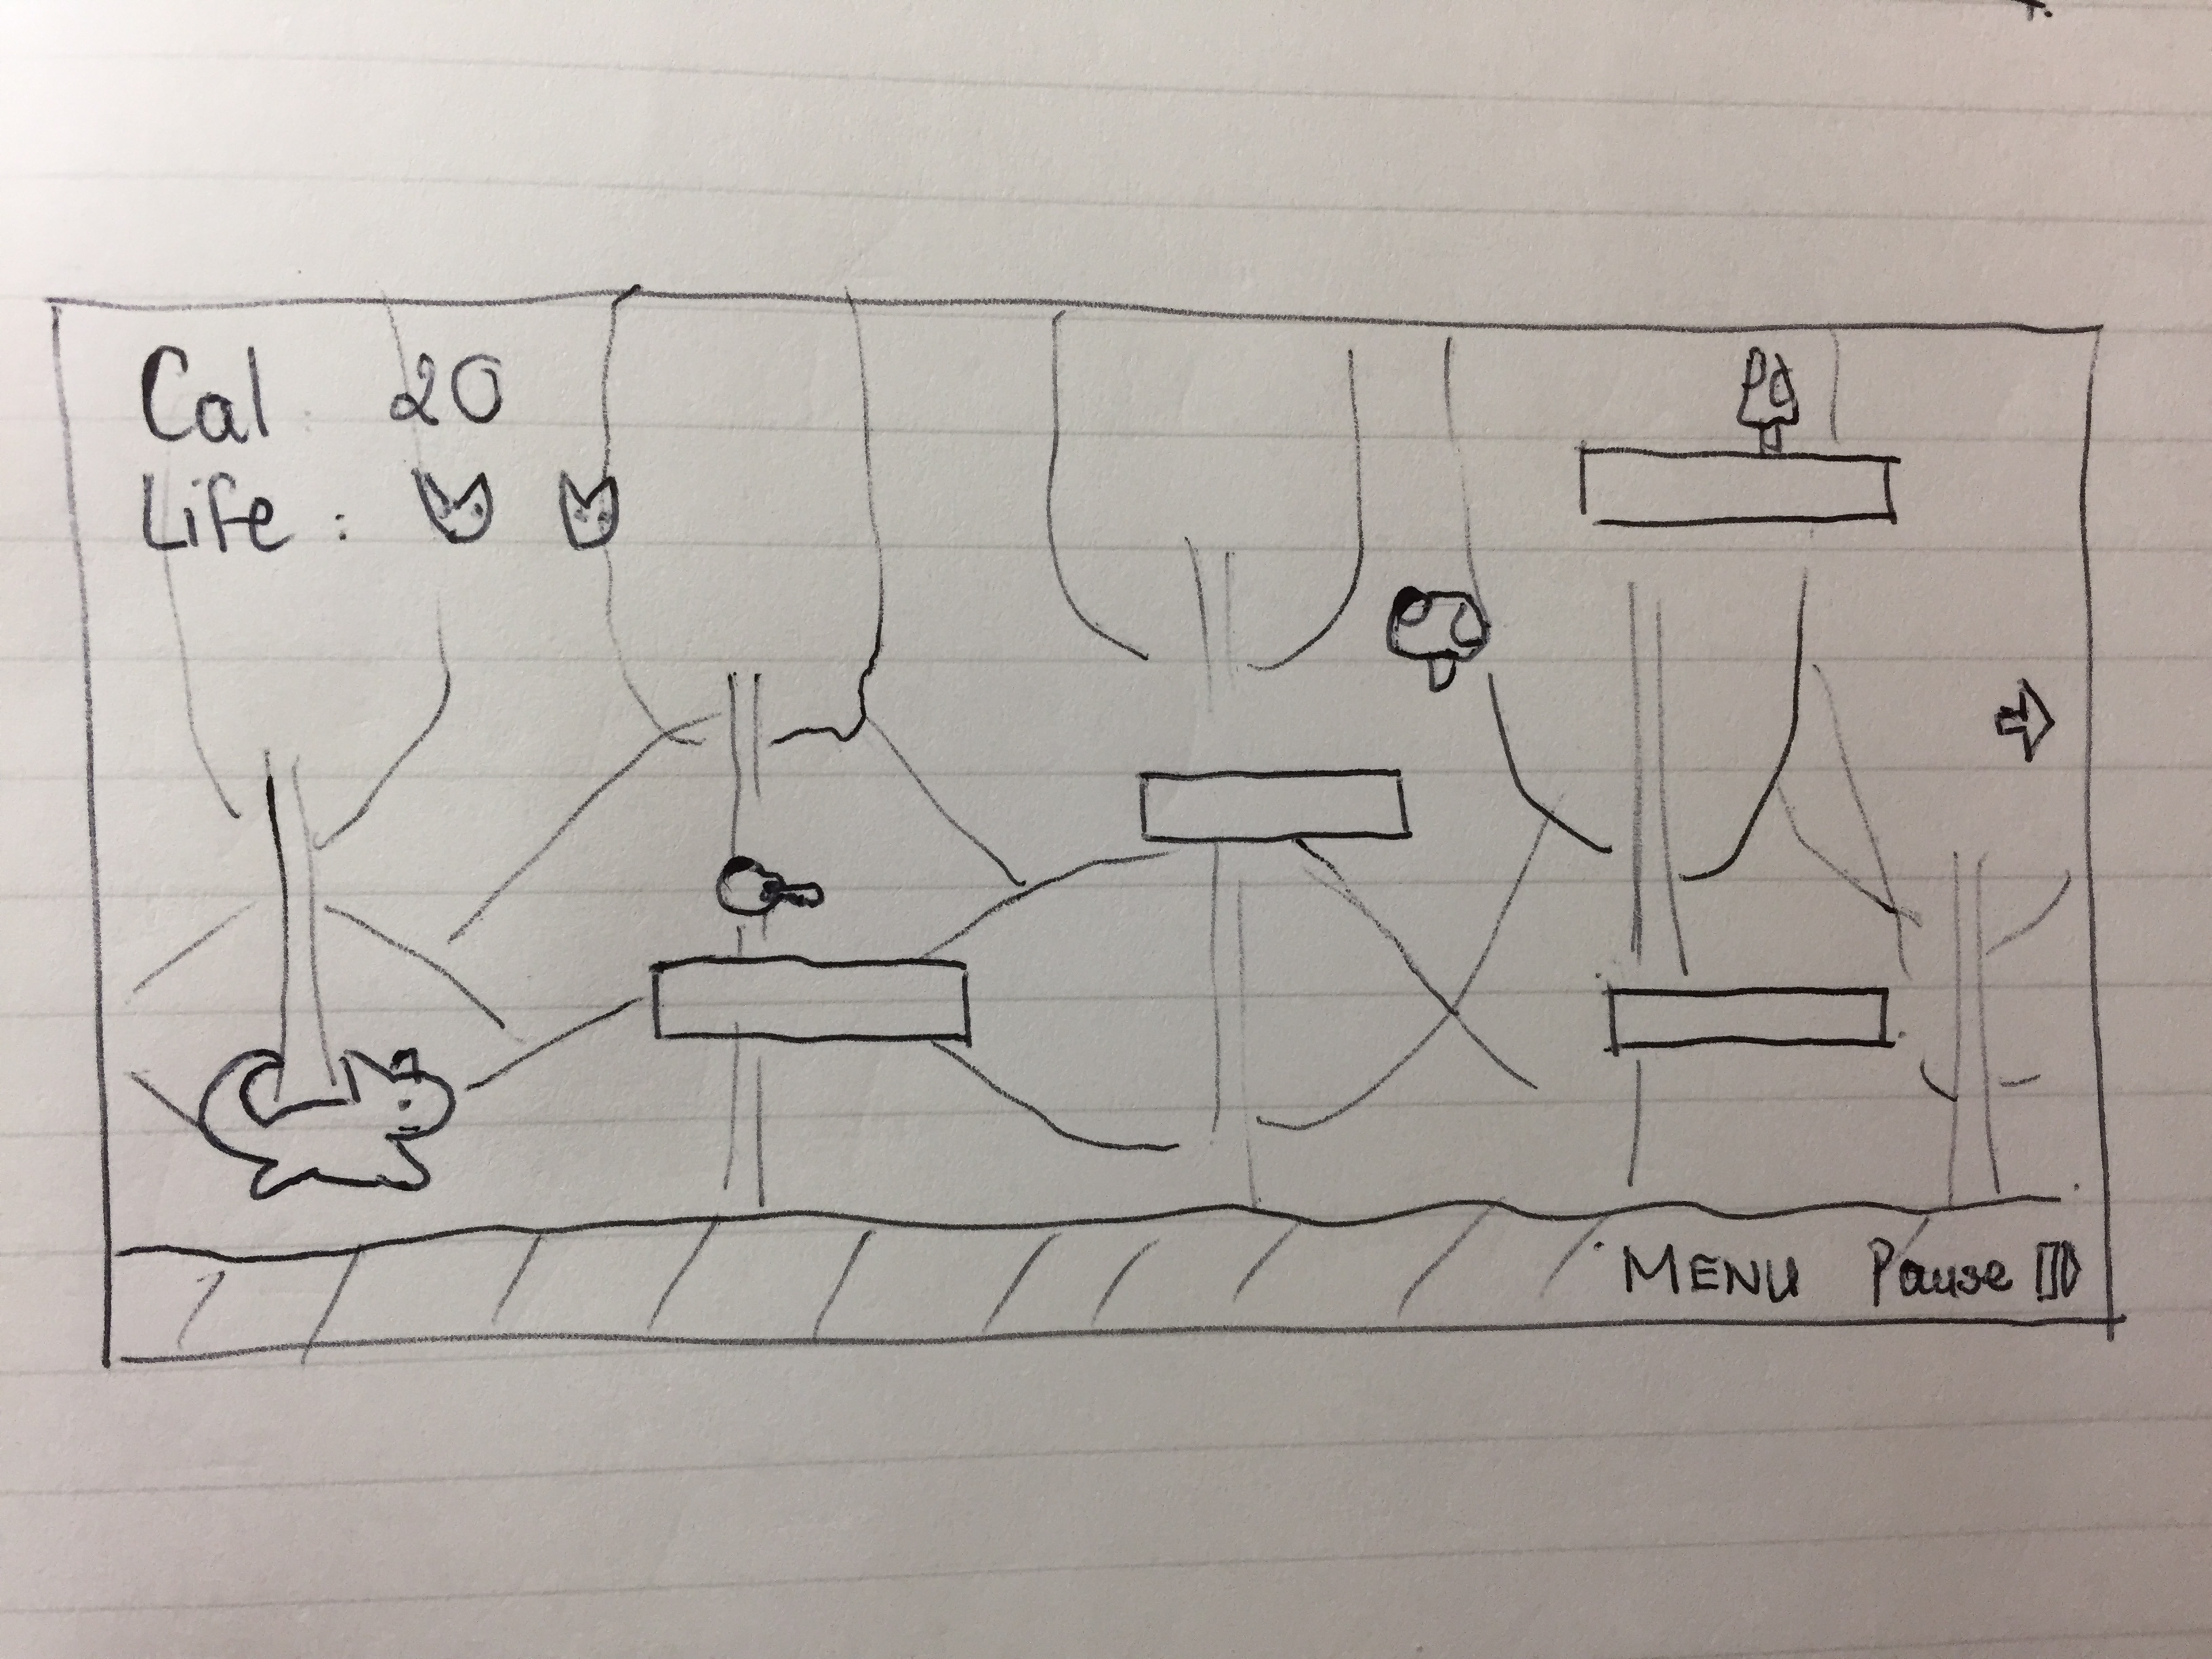 Cal : 20
Life :
MENU Pause